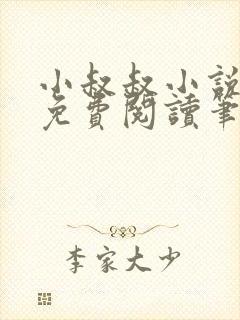 小叔叔小說
免費閱讀筆
李家大少